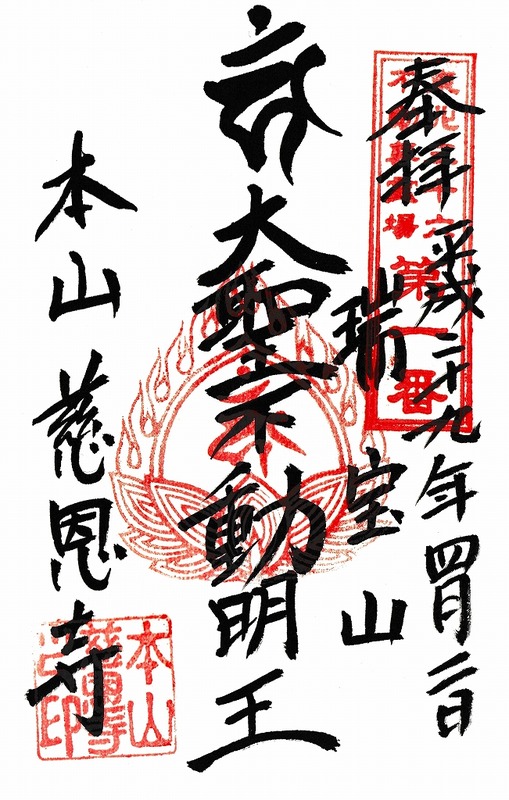 奉拝
平成二十九年四月二日
第一番
瑞宝山
大聖不動明王
本山慈恩寺
本山
慈恩寺
之印